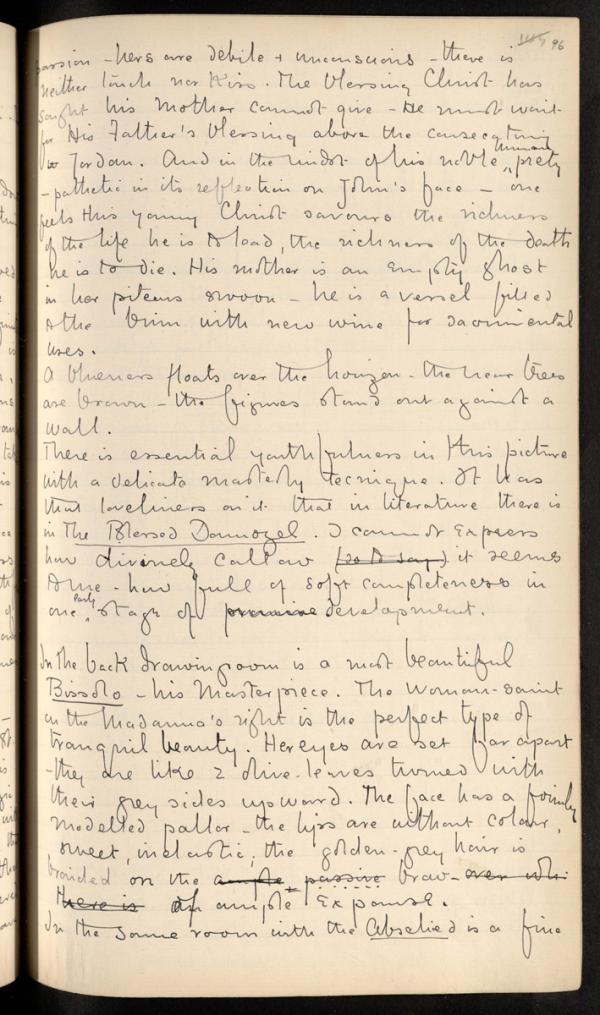 96
passion - hers are debile + unconscious - there is
neither touch nor kiss. The blessing Christ has
sought his Mother cannot give - He must wait
for His Father's blessing above the consecrating
Jordan. And in the midst of his noble human piety
- pathetic in its reflection on John's face - one
feels this young Christ savours the richness
of the life he is to lead, the richness of the death
he is to die. His mother is an empty ghost
in her piteous swoon - he is a vessel filled
to the brim with new wine for sacramental
uses.
A blueness floats over the horizon - the near trees
are brown - the figures stand out against a
wall.
There is essential youthfulness in this picture
with a delicate masterly tecnique. It has
that loveliness on it that in literature there is
in The Blessed Damozel. I cannot express
how divinely callow (so to say) it seems
to me - how full of soft completeness in
one early stage of promise development.
In the back drawingroom is a most beautiful
Bissolo - his Masterpiece. The Woman-saint
on the Madonna's right is the perfect type of
tranquil beauty. Her eyes are set far apart
- they are like 2 olive-leaves turned with
their grey sides upward. The face has a firmly
modelled pallor - the lips are without colour,
sweet, inelastic, the golden-grey hair is
braided on the ample + passive brow - over whi
there is of ample expanse.
In the same room with the Abschied is a fine